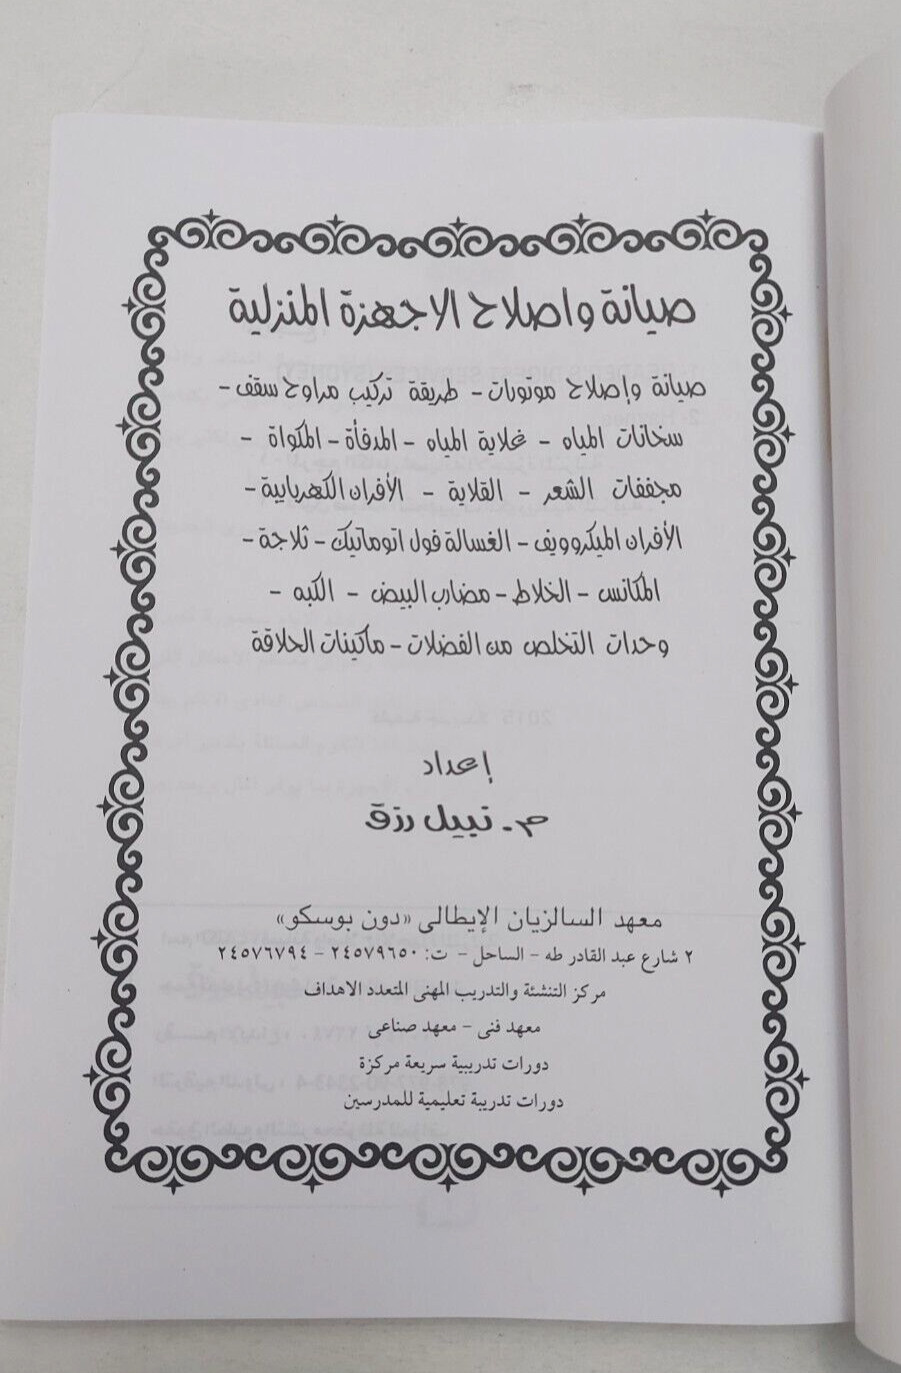 صيانة واصلاح الاجهزة المنزلية
صيانة وإصلاح موتورات - طريقة تركيب مراوح سقف -
سخانات المياه - غلاية المياه - المدفأة - المكواة -
مجففات الشعر - القلاية - الأفران الكهربايية -
الأفران الميكروويف - الغسالة فول اتوماتيك - ثلاجة -
المكانس - الخلاط - مضارب البيض - الكبه -
وحدات التخلص من الفضلات - ماكينات الحلاقة
إعداد
م. نبيل رزق
معهد السالزيان الإيطالى «دون بوسكو»
٢ شارع عبد القادر طه - الساحل - ت: ٢٤٥٧٩٦٥٠ - ٢٤٥٧٦٧٩٤
مركز التنشئة والتدريب المهنى المتعدد الاهداف
معهد فنى - معهد صناعى
دورات تدريبية سريعة مركزة
دورات تدريبة تعليمية للمدرسين